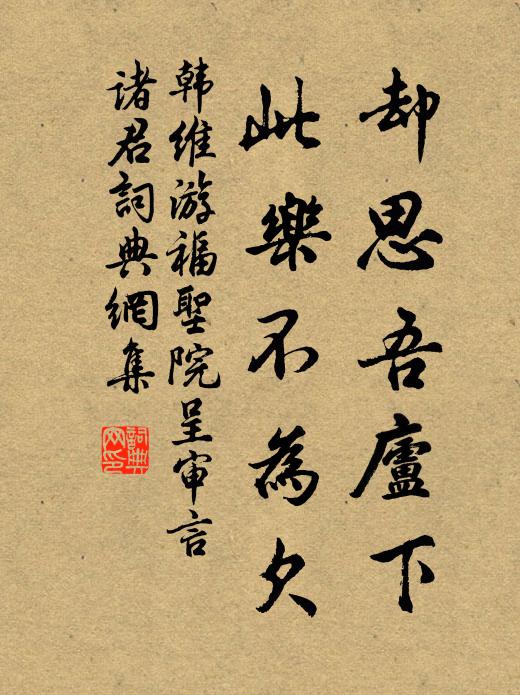 却思吾廬下
此樂不為欠
韩維游福聖院呈审言
诸君詞典網集
詞典网印